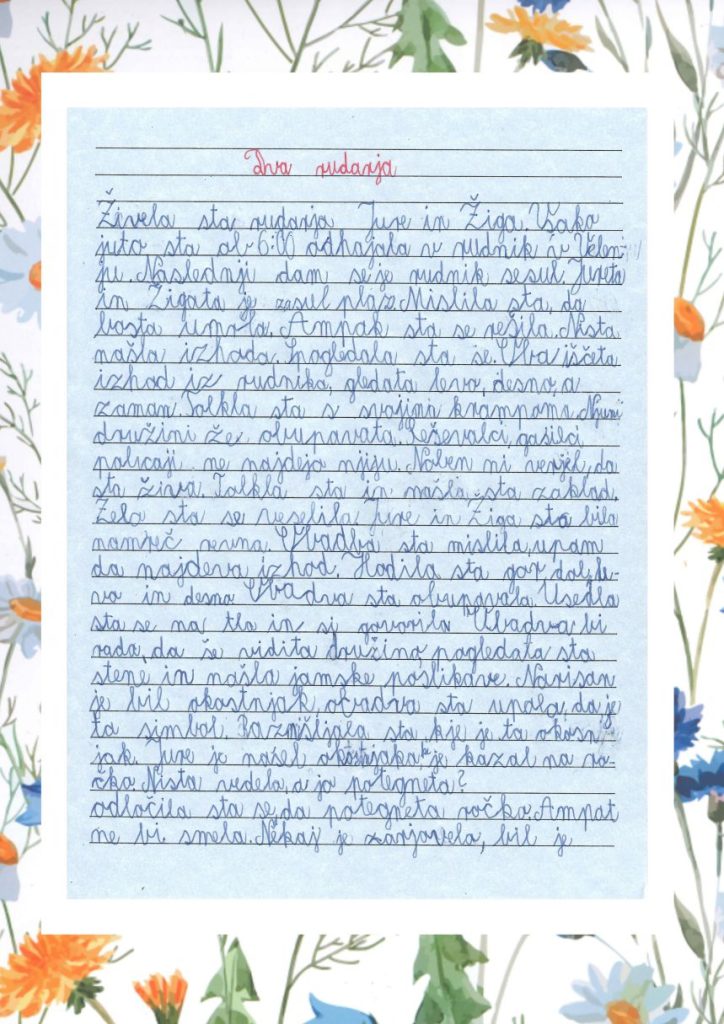 Dva rudarja
Živela sta rudarja Jure in Žiga. Vsako
jutro sta ob 6:00 odhajala v rudnik v Velen-
ju. Naslednji dam se je rudnik sesul. Jureta
in Žigata je zasul plaz. Mislila sta, da
bosta umrla. Ampak sta se rešila. Nista
našla izhoda. Spogledala sta se. Oba iščeta
izhod iz rudnika, gledata levo, desno, a
zaman. Tolkla sta s svojimi krampomi. Njuni
družini že obupavata. Reševalci, gasilci
policaji ne najdeja njiju. Noben ni verjel, da
sta živa. Tolkla sta in našla sta zaklad.
Zelo sta se veselila Jure in Žiga sta bila
namreč revna. Obadva sta mislila, upam
da najdeva izhod. Hodila sta gor, dol, le-
vo in desno Obadva sta obupovala. Usedla
sta se na tla in si govorila Obadva bi
rada, da še vidita družino, pogledata sta
stene in našla jamske poslikave. Narisan
je bil okostnjak, obadva sta upala, da je
ta simbol. Razmišljala sta, kje je ta okosn-
jak. Jure je našel okostnjaka je kazal na ro-
čko. Nista vedela, a jo potegneta?
odločila sta se, da potegneta ročko. Ampat
ne bi smela. Nekaj je zarjovelo, bil je